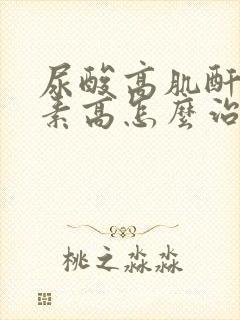 尿酸高肌酐
素高怎麽治
桃之淼淼